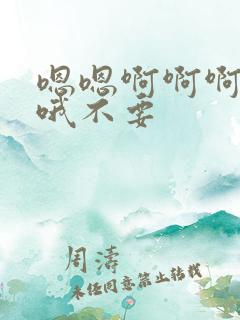 嗯嗯啊啊啊
哦不要
周涛
未经同意禁止转载